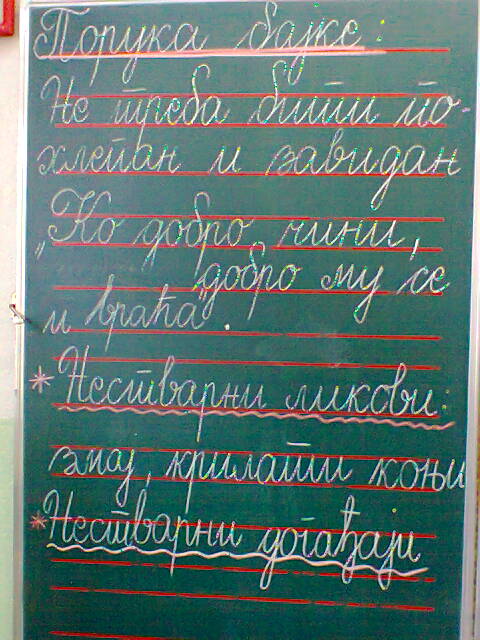 Порука бајке:
Не треба бити по-
хлепан и завидан
„Ко добро чини,
добро му се
и враћа".
* Нестварни ликови:
змај, крилати коњи
* Нестварни догађаји